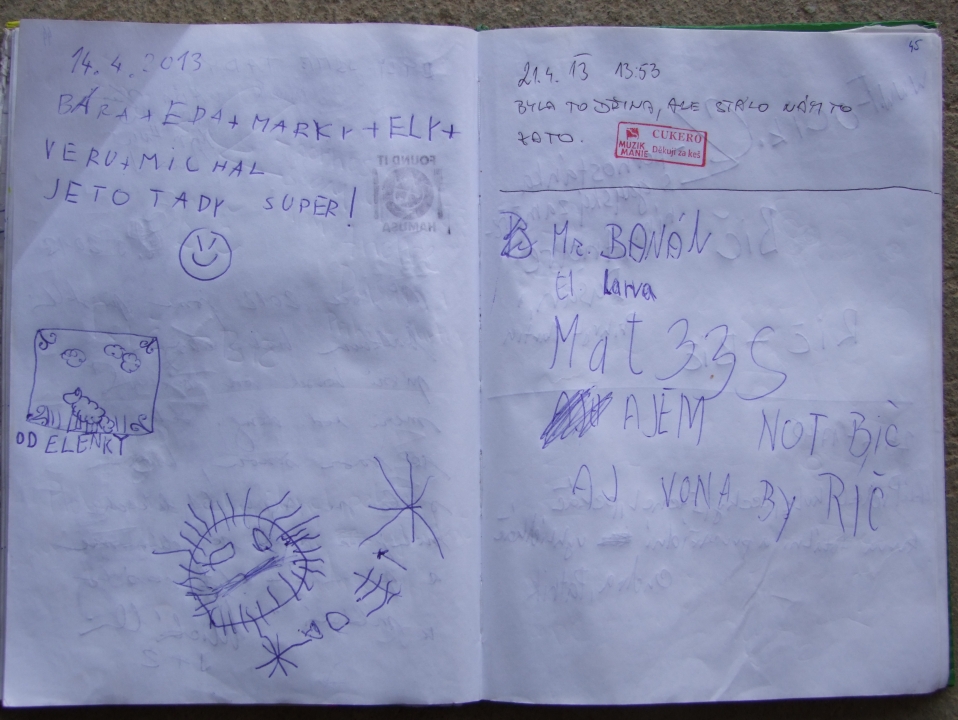 14.4.2013
BÁRA + EDA + MARKY + ELY +
VERU + MICHAL
JE TO TADY SUPER!
OD ELENKY
45
21.4. 13 13:53
BYLA TO DŘINA, ALE STÁLO NÁM TO
ZATO.
MUZIK MANIE
CUKERO
Děkuji za keš
Mr. BANÁN
El Larva
Mat 335
AJÉM NOT Bič
AJ VONA By RIČ
FOUND IT